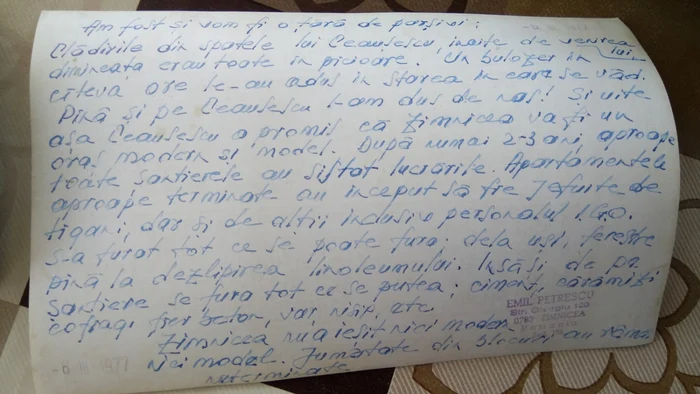 Am fost și vom fi o țară de parșivi:
Clădirile din spatele lui Ceaușescu, inaite de venirea lui
dimineata erau toate in picioare. Un bulozer in
citeva ore le-au adus in starea in care se văd.
Pînă și pe Ceausescu l-am dus de nas! Si uite
așa Ceausescu a promis că Zimnicea va fi un
oraș modern și model. După numai 2-3 ani, aproape
toate șantierele au sistat lucrările. Apartamentele
aproape terminate au inceput să fie jefuite de
tigani, dar si de altii inclusiv personalul I.G.O.
S-a furat tot ce se poate fura; dela uși, ferestre
pînă la dezlipirea linoleumului. Insăși de pe
șantiere se fura tot ce se putea; ciment, cărămizi
cofragi fier beton var, nisip, etc.
Zimnicea nu a ieșit nici modern
Nici model. Jumătate din blocuri au rămas
neterminate
EMIL PETRESCU
Str. 100
0763 ZIMNICEA
Romania
-6 III 1977